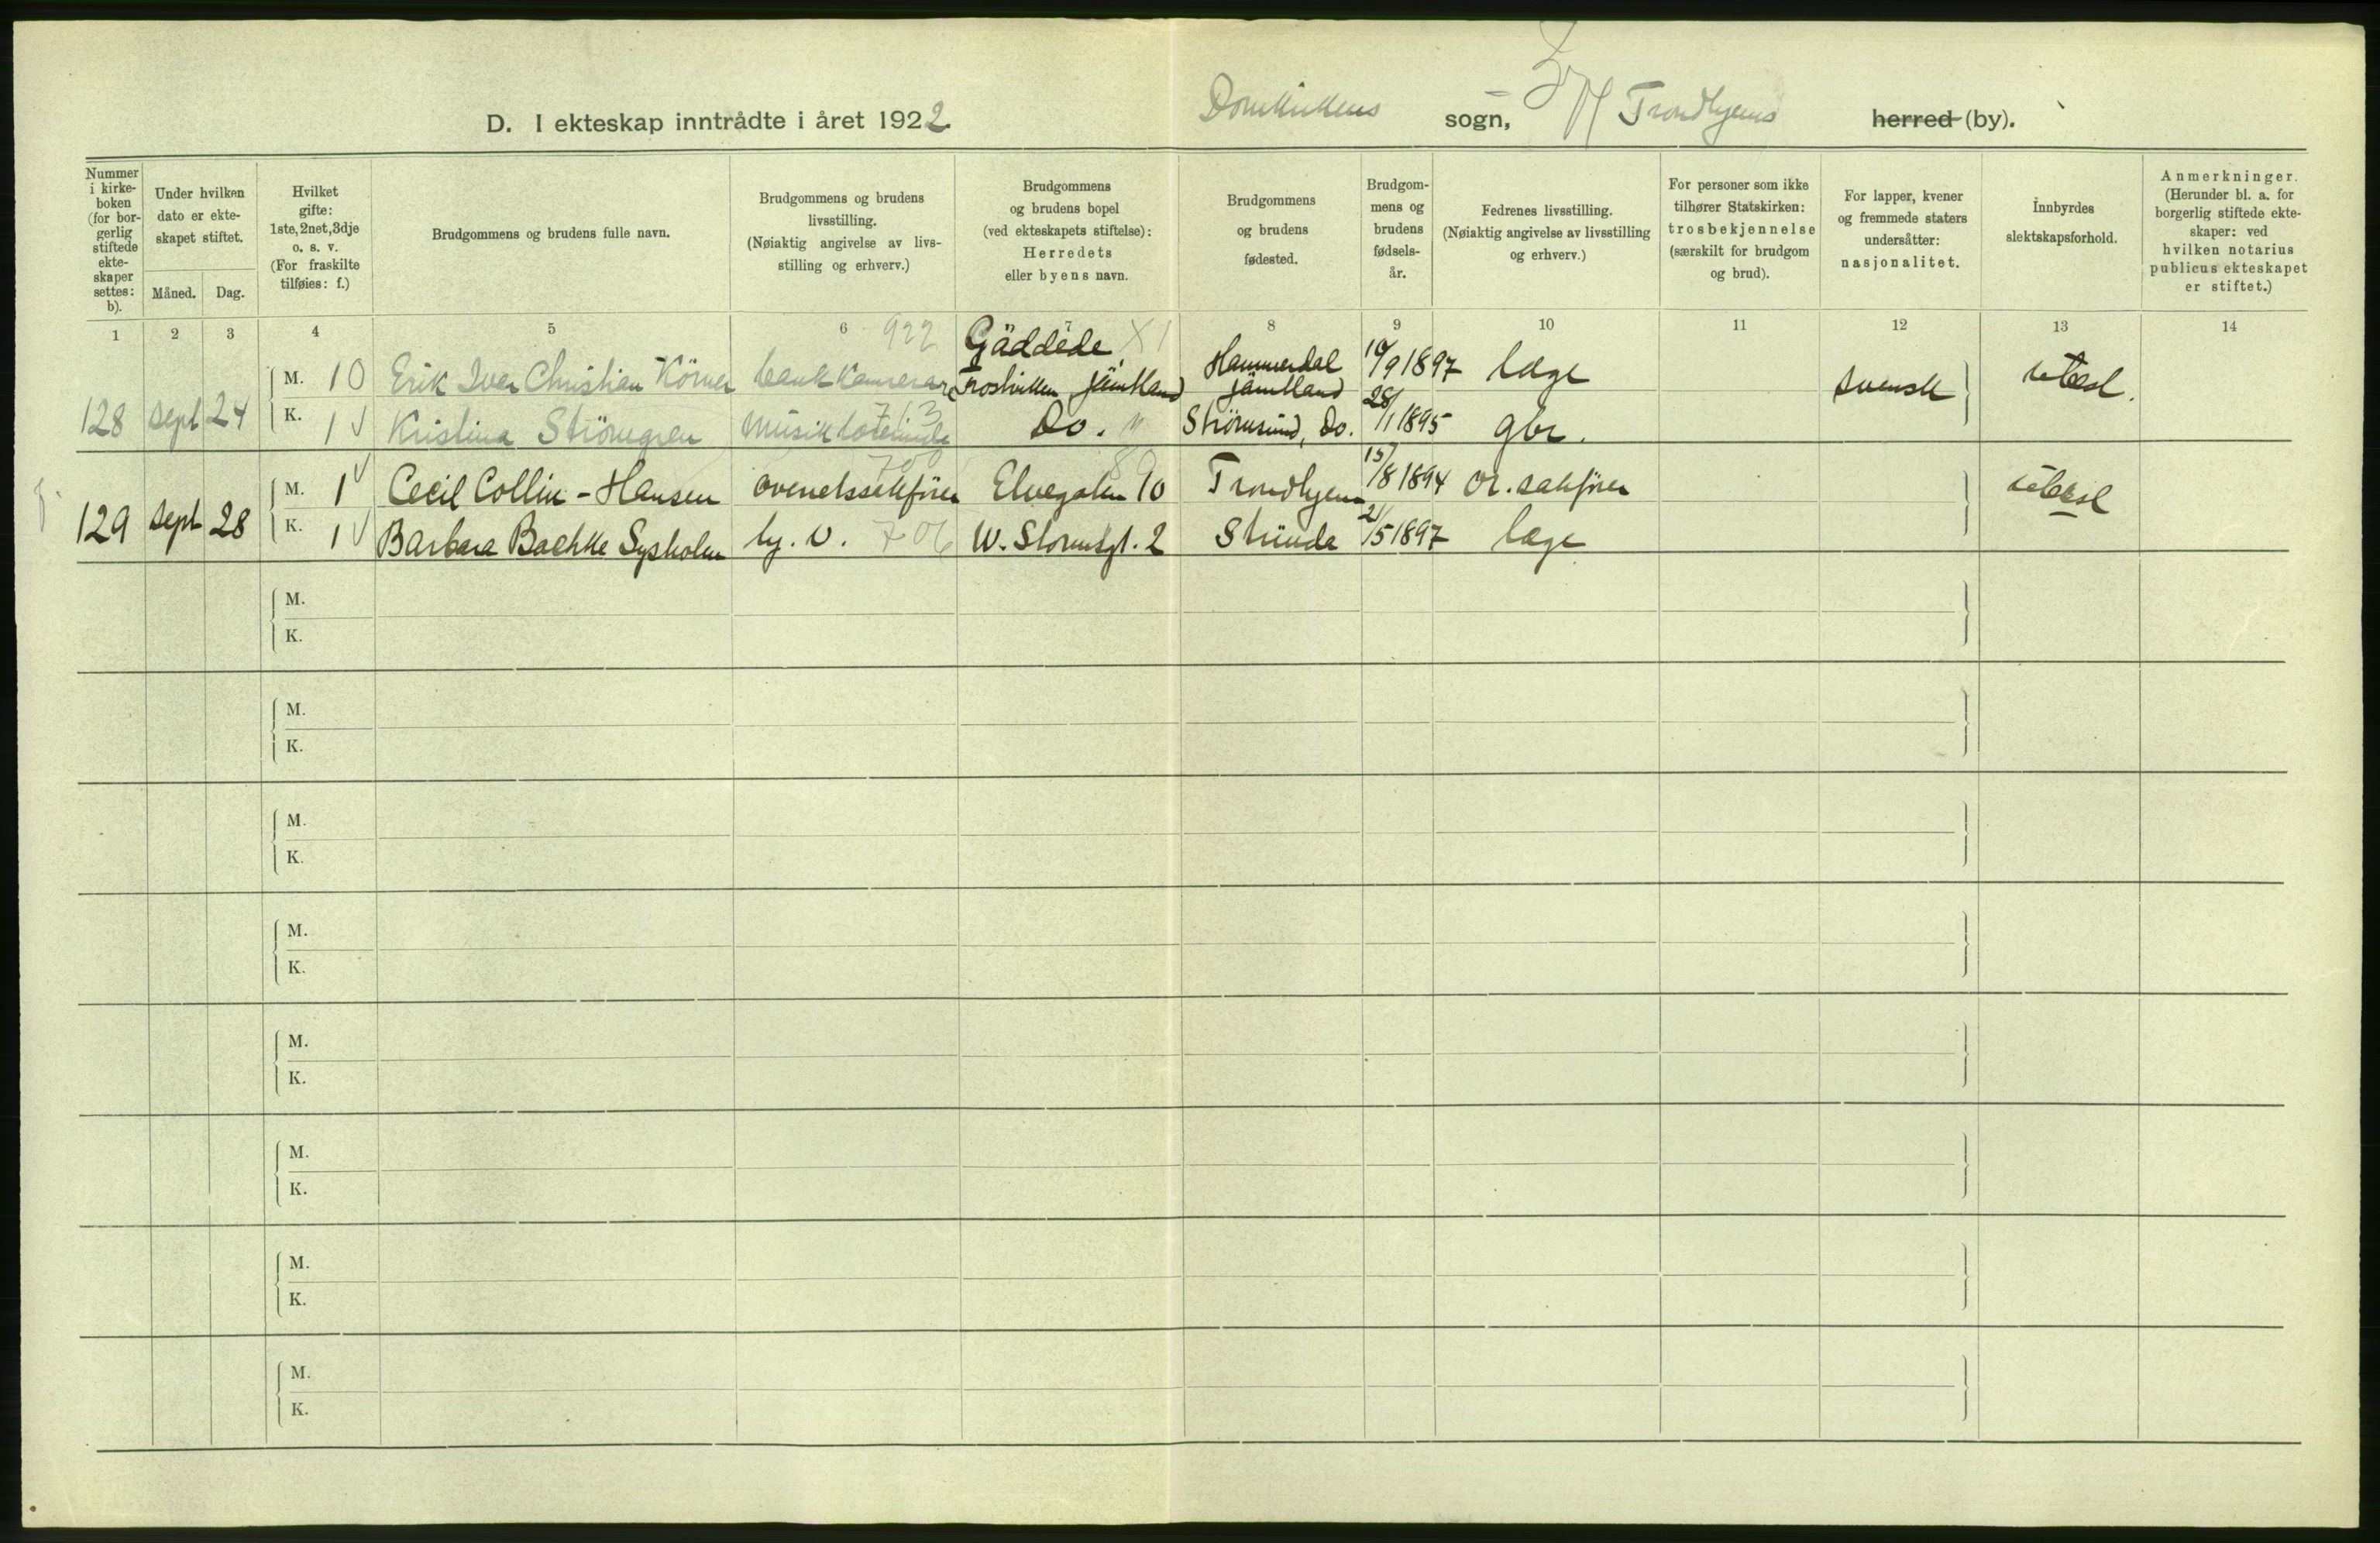 D. I ekteskap inntrådte i året 1922. Domkirkens sogn, Trondhjems herred (by).
Nummer i kirke-boken (for bor-gerlig stiftede ekte-skaper settes: b).
Under hvilken dato er ekte-skapet stiftet.
Måned. Dag.
Hvilket gifte: 1ste, 2net, 3dje o. s. v. (For fraskilte tilføies: f.)
Brudgommens og brudens fulle navn.
Brudgommens og brudens livsstilling. (Nøiaktig angivelse av livs-stilling og erhverv.)
Brudgommens og brudens bopel (ved ekteskapets stiftelse): Herredets eller byens navn.
Brudgommens og brudens fødested.
Brudgom-mens og brudens fødsels-år.
Fedrenes livsstilling. (Nøiaktig angivelse av livsstilling og erhverv.)
For personer som ikke tilhører Statskirken: trosbekjennelse (særskilt for brudgom og brud).
For lapper, kvener og fremmede staters undersåtter: nasjonalitet.
Innbyrdes slektskapsforhold.
Anmerkninger. (Herunder bl. a. for borgerlig stiftede ekte-skaper: ved hvilken notarius publicus ekteskapet er stiftet.)
1 2 3 4 5 6 7 8 9 10 11 12 13 14
922 Gäddede, X1
M. 10 Erik Iver Christian Körner bankkamerer Frostviken, Jämtland Hammerdal Jämtland 10/9 1897 læge svensk ubesl.
128 sept 24
K. 1 Kristina Strömgren 713 Do. Strömsund, Do. 28/1 1895 gbr.
M. 1 Cecil Collin-Hansen overretssakfører Elvegaten 10 Trondhjem 15/8 1894 or. sakfører ubesl
129 sept 28
K. 1 Barbara Bachke Sysholm hj. v. 706 W. Stormsgt. 2 Strinda 21/5 1897 læge
M.
K.
M.
K.
M.
K.
M.
K.
M.
K.
M.
K.
M.
K.
M.
K.